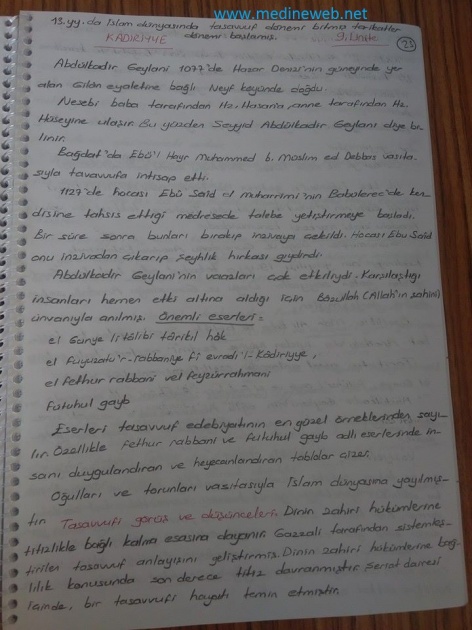 www.medineweb.net
13.yy.da İslam dünyasında tasavvuf dönemi bitmiş tarikatler
KADIRIYYE dönemi başlamış. 9. Ünite
23
Abdülkadir Geylani 1077'de Hazar Denizi'nin güneyinde yer
alan Gilan eyaletine bağlı Neyf köyünde doğdu.
Nesebi baba tarafından Hz. Hasan'a, anne tarafından Hz.
Hüseyine ulaşır. Bu yüzden Seyyid Abdülkadir Geylani diye bi-
linir.
Bağdat'da Ebü'l Hayr Muhammed b. Müslim ed Debbas vasıta-
sıyla tavavvufa intisap etti.
1127'de hocası Ebû Said el muharrimi'nin Babulerec'de ken-
disine tahsis ettiği medresede talebe yetiştirmeye başladı.
Bir süre sonra bunları bırakıp inzivaya çekildi. Hocası Ebu Said
onu inzivadan çıkarıp şeyhlik hırkası giydirdi.
Abdülkadir Geylani'nin vaazları çok etkiliydi. Karşılaştığı
insanları hemen etki altına aldığı için Bâzullah (Allah'ın şahini)
ünvanıyla anılmış. Önemli eserleri:
el Gunye li tâlibi târikil hak
el Fuyuzatu'r-rabbaniye fi evradi'l-Kâdiriyye,
el fethur rabbani vel feyzürrahmani
Futuhul gayb
Eserleri tasavvuf edebiyatının en güzel örneklerinden sayı-
lır. Özellikle fethur rabbani ve futuhul gayb adlı eserlerinde in-
sanı duygulandıran ve heyecanlandıran tablolar çizer.
Oğulları ve torunları vasıtasıyla İslam dünyasına yayılmış-
tır. Tasavvufi görüş ve düşünceleri: Dinin zahiri hükümlerine
titizlikle bağlı kalma esasına dayanır. Gazzali tarafından sistemleş-
tirilen tasavvuf anlayışını geliştirmiş. Dinin zahiri hükümlerine bağ-
lılık konusunda son derece titiz davranmıştır. Şeriat dairesi
içinde, bir tasavvufi hayatı temin etmiştir.